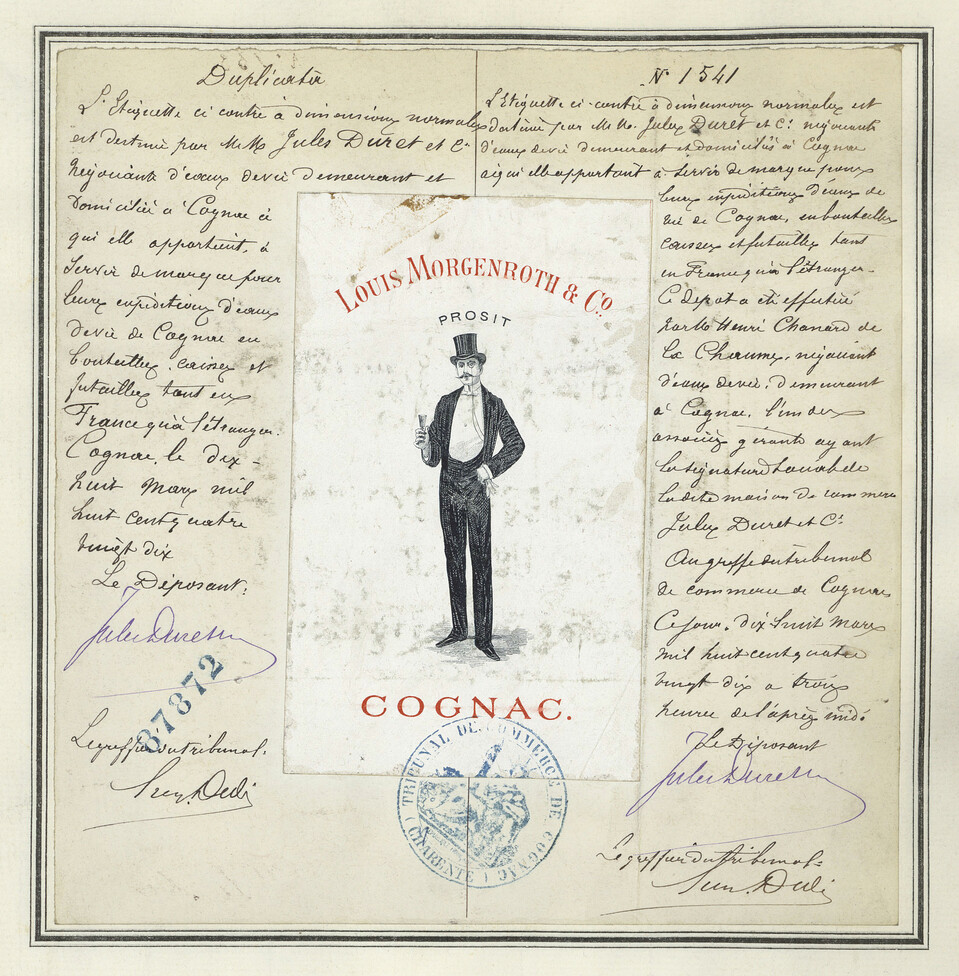 Duplicata
L'Etiquette ci contre à dimensions normales
est destinée par M.M. Jules Duret et Cie
négociants d'eaux de vie demeurant et
domiciliés à Cognac à
qui elle appartient, à
servir de marque pour
leurs expéditions d'eaux
de vie de Cognac en
bouteilles, caisses et
futailles tant en
France qu'à l'étranger.
Cognac, le dix-
huit Mars mil
huit cent quatre
vingt dix
Le Déposant:
Jules Duret
37872
Le greffier du tribunal:
N° 1541
L'Etiquette ci-contre à dimensions normales est
destinée par M.M. Jules Duret et Cie négociants
d'eaux de vie demeurant et domiciliés à Cognac
à qui elle appartient à servir de marque pour
leurs expéditions d'eaux de
vie de Cognac, en bouteilles
caisses et futailles tant
en France qu'à l'étranger.
Ce dépot a été effectué
par M. Henri Chanard de
la Chaume, négociant
d'eaux de vie, demeurant
à Cognac, l'un des
associés gérants ayant
la signature sociale de
la dite maison de commerce
Jules Duret et Cie
Au greffe du tribunal
de commerce de Cognac
Ce jour, dix-huit Mars
mil huit cent quatre
vingt dix à trois
heures de l'après midi
Le Déposant
Jules Duret
Le greffier du tribunal:
LOUIS MORGENROTH & Co.
PROSIT
COGNAC.
TRIBUNAL DE COMMERCE DE COGNAC
(CHARENTE)